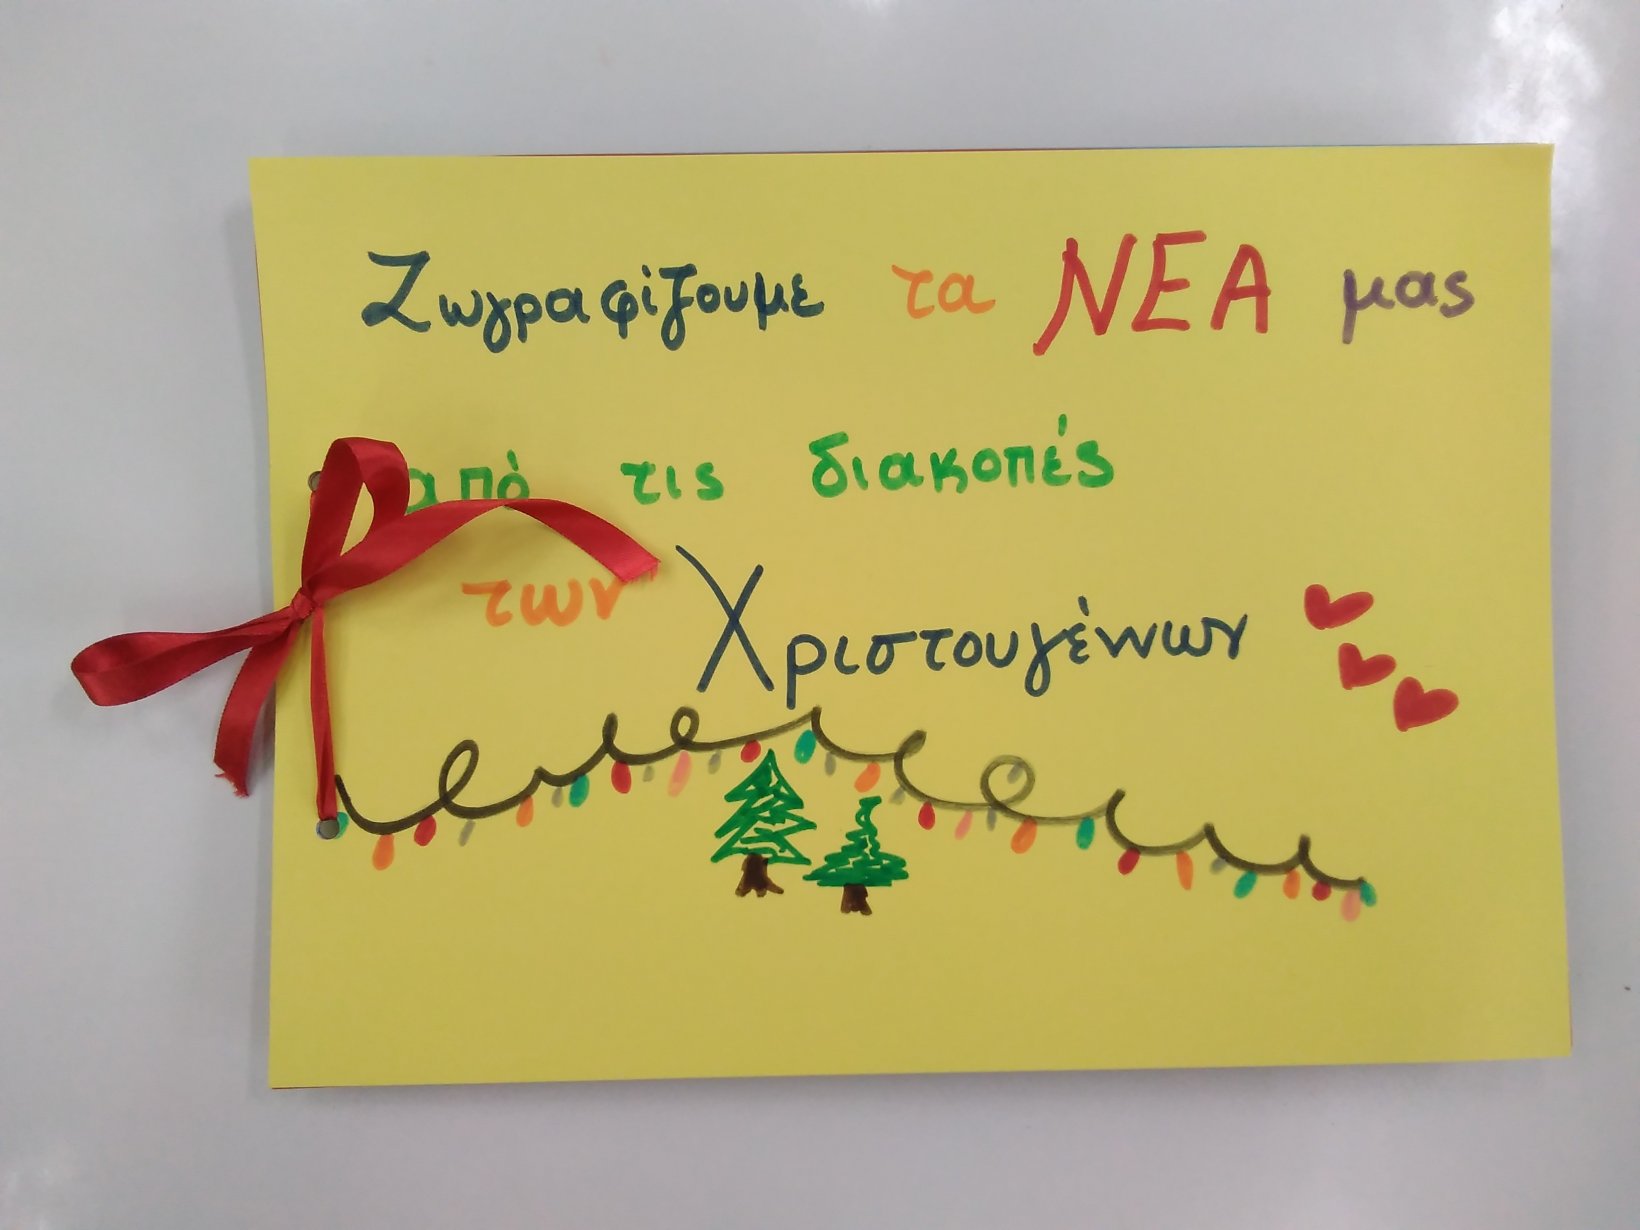 Ζωγραφίζουμε τα ΝΕΑ μας
από τις διακοπές
των Χριστουγέννων